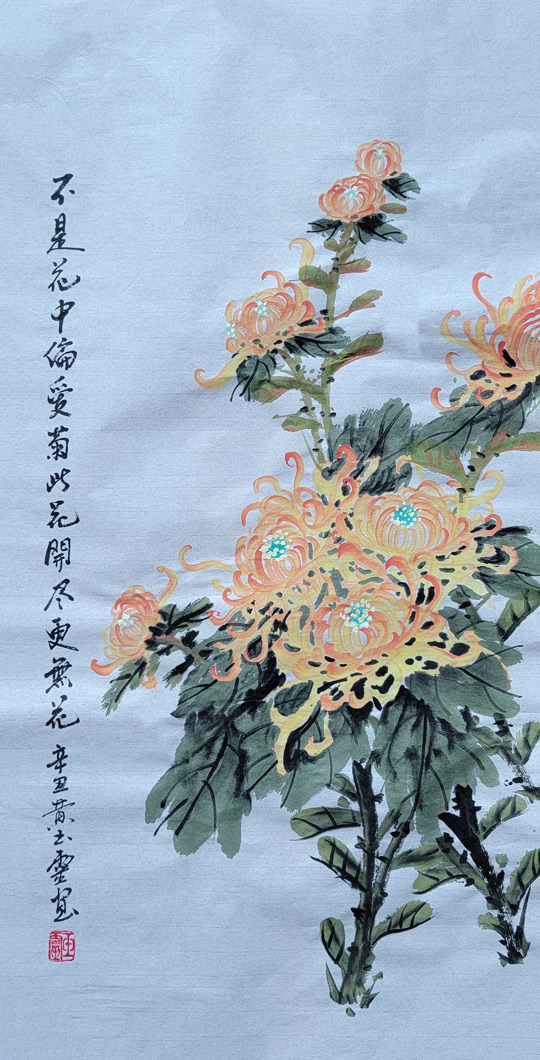 不是花中偏愛菊此花開尽更無花 辛丑黄玉靈